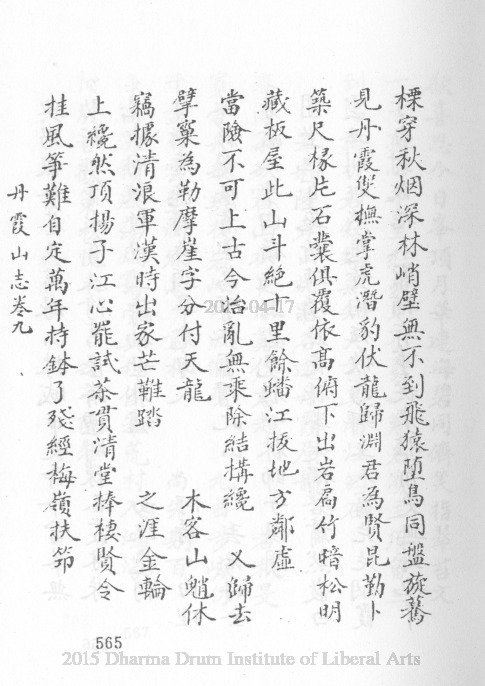 檪穿秋烟深林峭壁無不到飛猿堕鳥同盤旋驀
見丹霞雙撫掌虎潛豹伏龍歸淵君為賢昆勤卜
築尺椽片石囊俱覆依高俯下出岩扃竹暗松明
藏板屋此山斗絕十里餘蟠江拔地方鄰虛
當險不可上古今治亂無乘除結構纔 又歸去
擘窠為勒摩崖字分付天龍 木客山魈休
竊據清浪軍漢時出家芒鞵踏 之涯金輪
上纔然頂揚子江心罷試茶貫清堂捧棲賢令
挂風箏難自定萬年持鉢了殘經梅嶺扶笻
丹霞山志卷九
565
2024-04-17
2015 Dharma Drum Institute of Liberal Arts